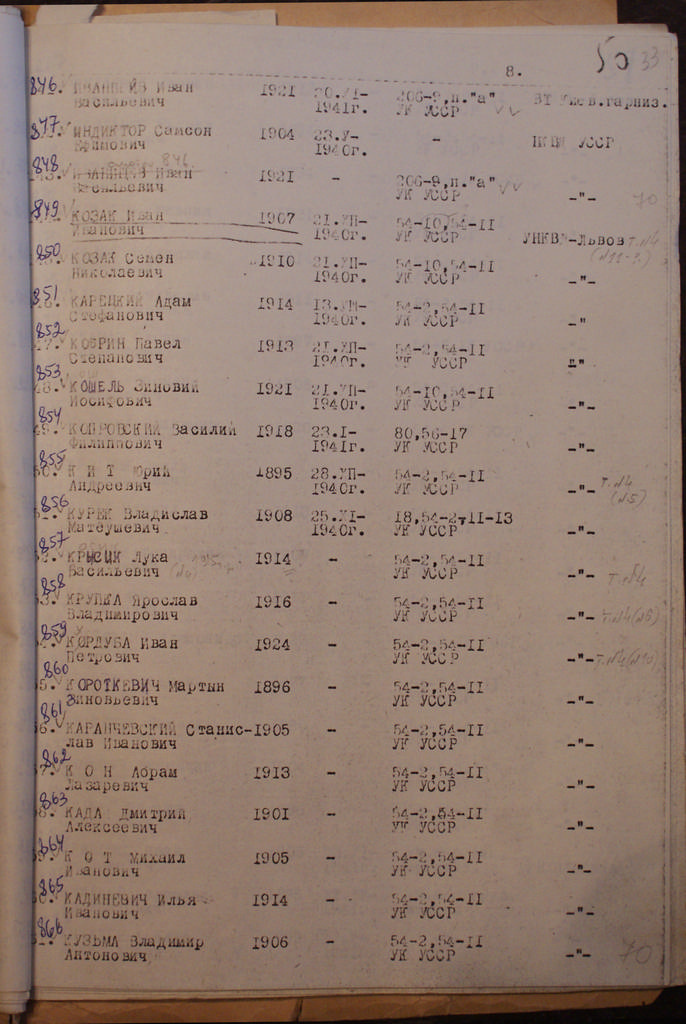 8. 50 33
846. Иван 1921 20.XI- 206-9,п."а" ВТ гарниз.
Васильевич 1941г. УК УССР
847. ИНДИКТОР Самсон 1904 23.У- - УССР
Ефимович 1940г.
848. 846.
Иван 1921 - 206-9,п."а"
Васильевич УК УССР -"- 70
849. КОЗАК Иван 1907 21.УП- 54-10,54-II
Иванович 1940г. УК УССР УНКВД-Львов т.№4
850. КОЗАК Семен 1910 21.УП- 54-10,54-II
Николаевич 1940г. УК УССР -"-
851. КАРЕЦКИЙ Адам 1914 54-2,54-II
Стефанович 1940г. УК УССР -"
852. КОБРИН Павел 1913 21.УП- 54-2,54-II
Степанович 1940г. УК УССР -"
853. КОШЕЛЬ Зиновий 1921 21.УП- 54-10,54-II
Иосифович 1940г. УК УССР -"-
854. КОПРОВСКИЙ Василий 1918 23.I- 80,56-17
Филиппович 1941г. УК УССР -"-
855. К И Т Юрий 1895 28.УП- 54-2,54-II
Андреевич 1940г. УК УССР -"- т.№4
(№5)
856. КУРЕК Владислав 1908 25.XI- 18,54-2-II-13
Матеушевич 1940г. УК УССР -"-
857. КРЫСИК Лука 1914 - 54-2,54-II
Васильевич УК УССР -"- т.№4
858. КРУПКА Ярослав 1916 - 54-2,54-II
Владимирович УК УССР -"- т.№4
859. КОРДУБА Иван 1924 - 54-2,54-II
Петрович УК УССР -"- т.№4(№10)
860. КОРОТКЕВИЧ Мартын 1896 - 54-2,54-II
Зиновьевич УК УССР -"-
861. КАРАНЧЕВСКИЙ Станис-1905 - 54-2,54-II
лав Иванович УК УССР -"-
862. К О Н Абрам 1913 - 54-2,54-II
Лазаревич УК УССР -"-
863. КАДА Дмитрий 1901 - 54-2,54-II
Алексеевич УК УССР -"-
864. К О Т Михаил 1905 - 54-2,54-II
Иванович УК УССР -"-
865. КАДИНЕВИЧ Илья 1914 - 54-2,54-II
Иванович УК УССР -"-
866. КУЗЬМА Владимир 1906 - 54-2,54-II
Антонович УК УССР -"- 70